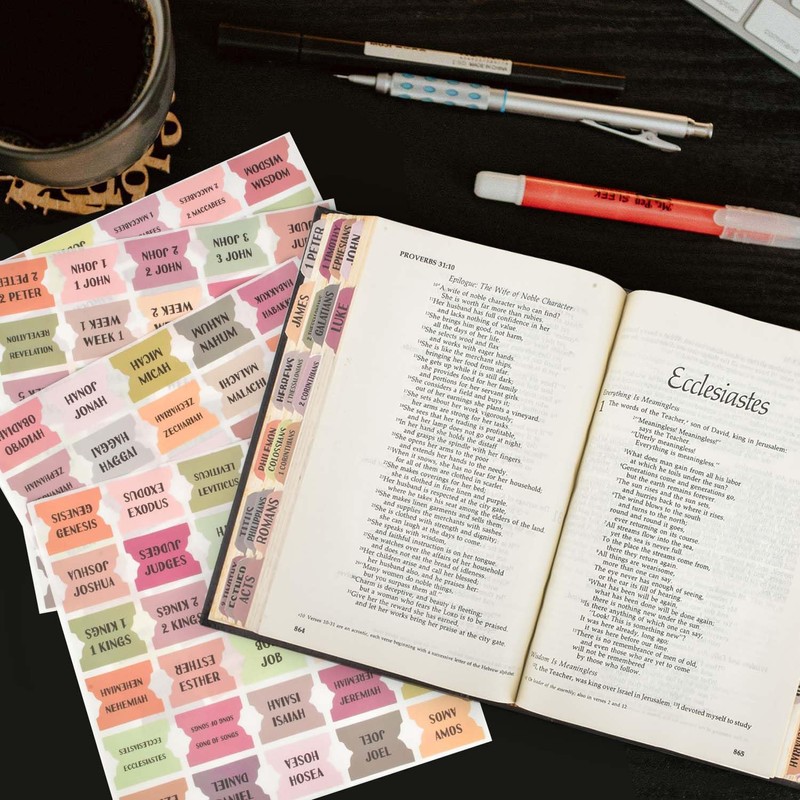 Mr. Pen SLEEK
WISDOM
WISDOM
2 MACCABEES
2 MACCABEES
1 MACCABEES
3 JOHN
3 JOHN
2 JOHN
2 JOHN
1 JOHN
1 JOHN
2 PETER
2 PETER
WEEK 2
WEEK 1
WEEK 1
REVELATION
REVELATION
HABAKKUK
NAHUM
NAHUM
MICAH
MICAH
JONAH
JONAH
OBADIAH
OBADIAH
MALACHI
MALACHI
ZECHARIAH
ZECHARIAH
HAGGAI
HAGGAI
ZEPHANIAH
GENESIS
GENESIS
EXODUS
EXODUS
LEVITICUS
LEVITICUS
JOSHUA
JOSHUA
JUDGES
JUDGES
1 KINGS
1 KINGS
2 KINGS
2 KINGS
NEHEMIAH
NEHEMIAH
ESTHER
ESTHER
JOB
ECCLESIASTES
ECCLESIASTES
SONG OF SONGS
SONG OF SONGS
ISAIAH
ISAIAH
JEREMIAH
JEREMIAH
DANIEL
HOSEA
HOSEA
JOEL
JOEL
AMOS
AMOS
1 PETER
1 TIMOTHY
EPHESIANS
JOHN
JAMES
GALATIANS
LUKE
HEBREWS
1 THESSALONIANS
2 CORINTHIANS
PHILEMON
COLOSSIANS
1 CORINTHIANS
TITUS
PHILIPPIANS
ROMANS
ESTHER
ACTS
PROVERBS 31:10
Epilogue: The Wife of Noble Character
10 A wife of noble character who can find?
She is worth far more than rubies.
11 Her husband has full confidence in her
and lacks nothing of value.
12 She brings him good, not harm,
all the days of her life.
13 She selects wool and flax
and works with eager hands.
14 She is like the merchant ships,
bringing her food from afar.
15 She gets up while it is still dark;
she provides food for her family
and portions for her servant girls.
16 She considers a field and buys it;
out of her earnings she plants a vineyard.
17 She sets about her work vigorously;
her arms are strong for her tasks.
18 She sees that her trading is profitable,
and her lamp does not go out at night.
19 In her hand she holds the distaff
and grasps the spindle with her fingers.
20 She opens her arms to the poor
and extends her hands to the needy.
21 When it snows, she has no fear for her household;
for all of them are clothed in scarlet.
22 She makes coverings for her bed;
she is clothed in fine linen and purple.
23 Her husband is respected at the city gate,
where he takes his seat among the elders of the land.
24 She makes linen garments and sells them,
and supplies the merchants with sashes.
25 She is clothed with strength and dignity;
she can laugh at the days to come.
26 She speaks with wisdom,
and faithful instruction is on her tongue.
27 She watches over the affairs of her household
and does not eat the bread of idleness.
28 Her children arise and call her blessed;
her husband also, and he praises her:
29 "Many women do noble things,
but you surpass them all."
30 Charm is deceptive, and beauty is fleeting;
but a woman who fears the LORD is to be praised.
31 Give her the reward she has earned,
and let her works bring her praise at the city gate.
10 Verses 10-31 are an acrostic, each verse beginning with a successive letter of the Hebrew alphabet
864
Ecclesiastes
Everything Is Meaningless
1 The words of the Teacher, son of David, king in Jerusalem:
2 "Meaningless! Meaningless!"
says the Teacher.
"Utterly meaningless!
Everything is meaningless."
3 What does man gain from all his labor
at which he toils under the sun?
4 Generations come and generations go,
but the earth remains forever.
5 The sun rises and the sun sets,
and hurries back to where it rises.
6 The wind blows to the south
and turns to the north;
round and round it goes,
ever returning on its course.
7 All streams flow into the sea,
yet the sea is never full.
To the place the streams come from,
8 All things are wearisome,
more than one can say.
The eye never has enough of seeing,
or the ear its fill of hearing.
9 What has been will be again,
what has been done will be done again;
there is nothing new under the sun.
10 Is there anything of which one can say,
"Look! This is something new"?
It was here already, long ago;
it was here before our time.
11 There is no remembrance of men of old,
and even those who are yet to come
will not be remembered
by those who follow.
Wisdom Is Meaningless
12 I, the Teacher, was king over Israel in Jerusalem. 13 I devoted myself to study
1 Or leader of the assembly; also in verses 2 and 12
865